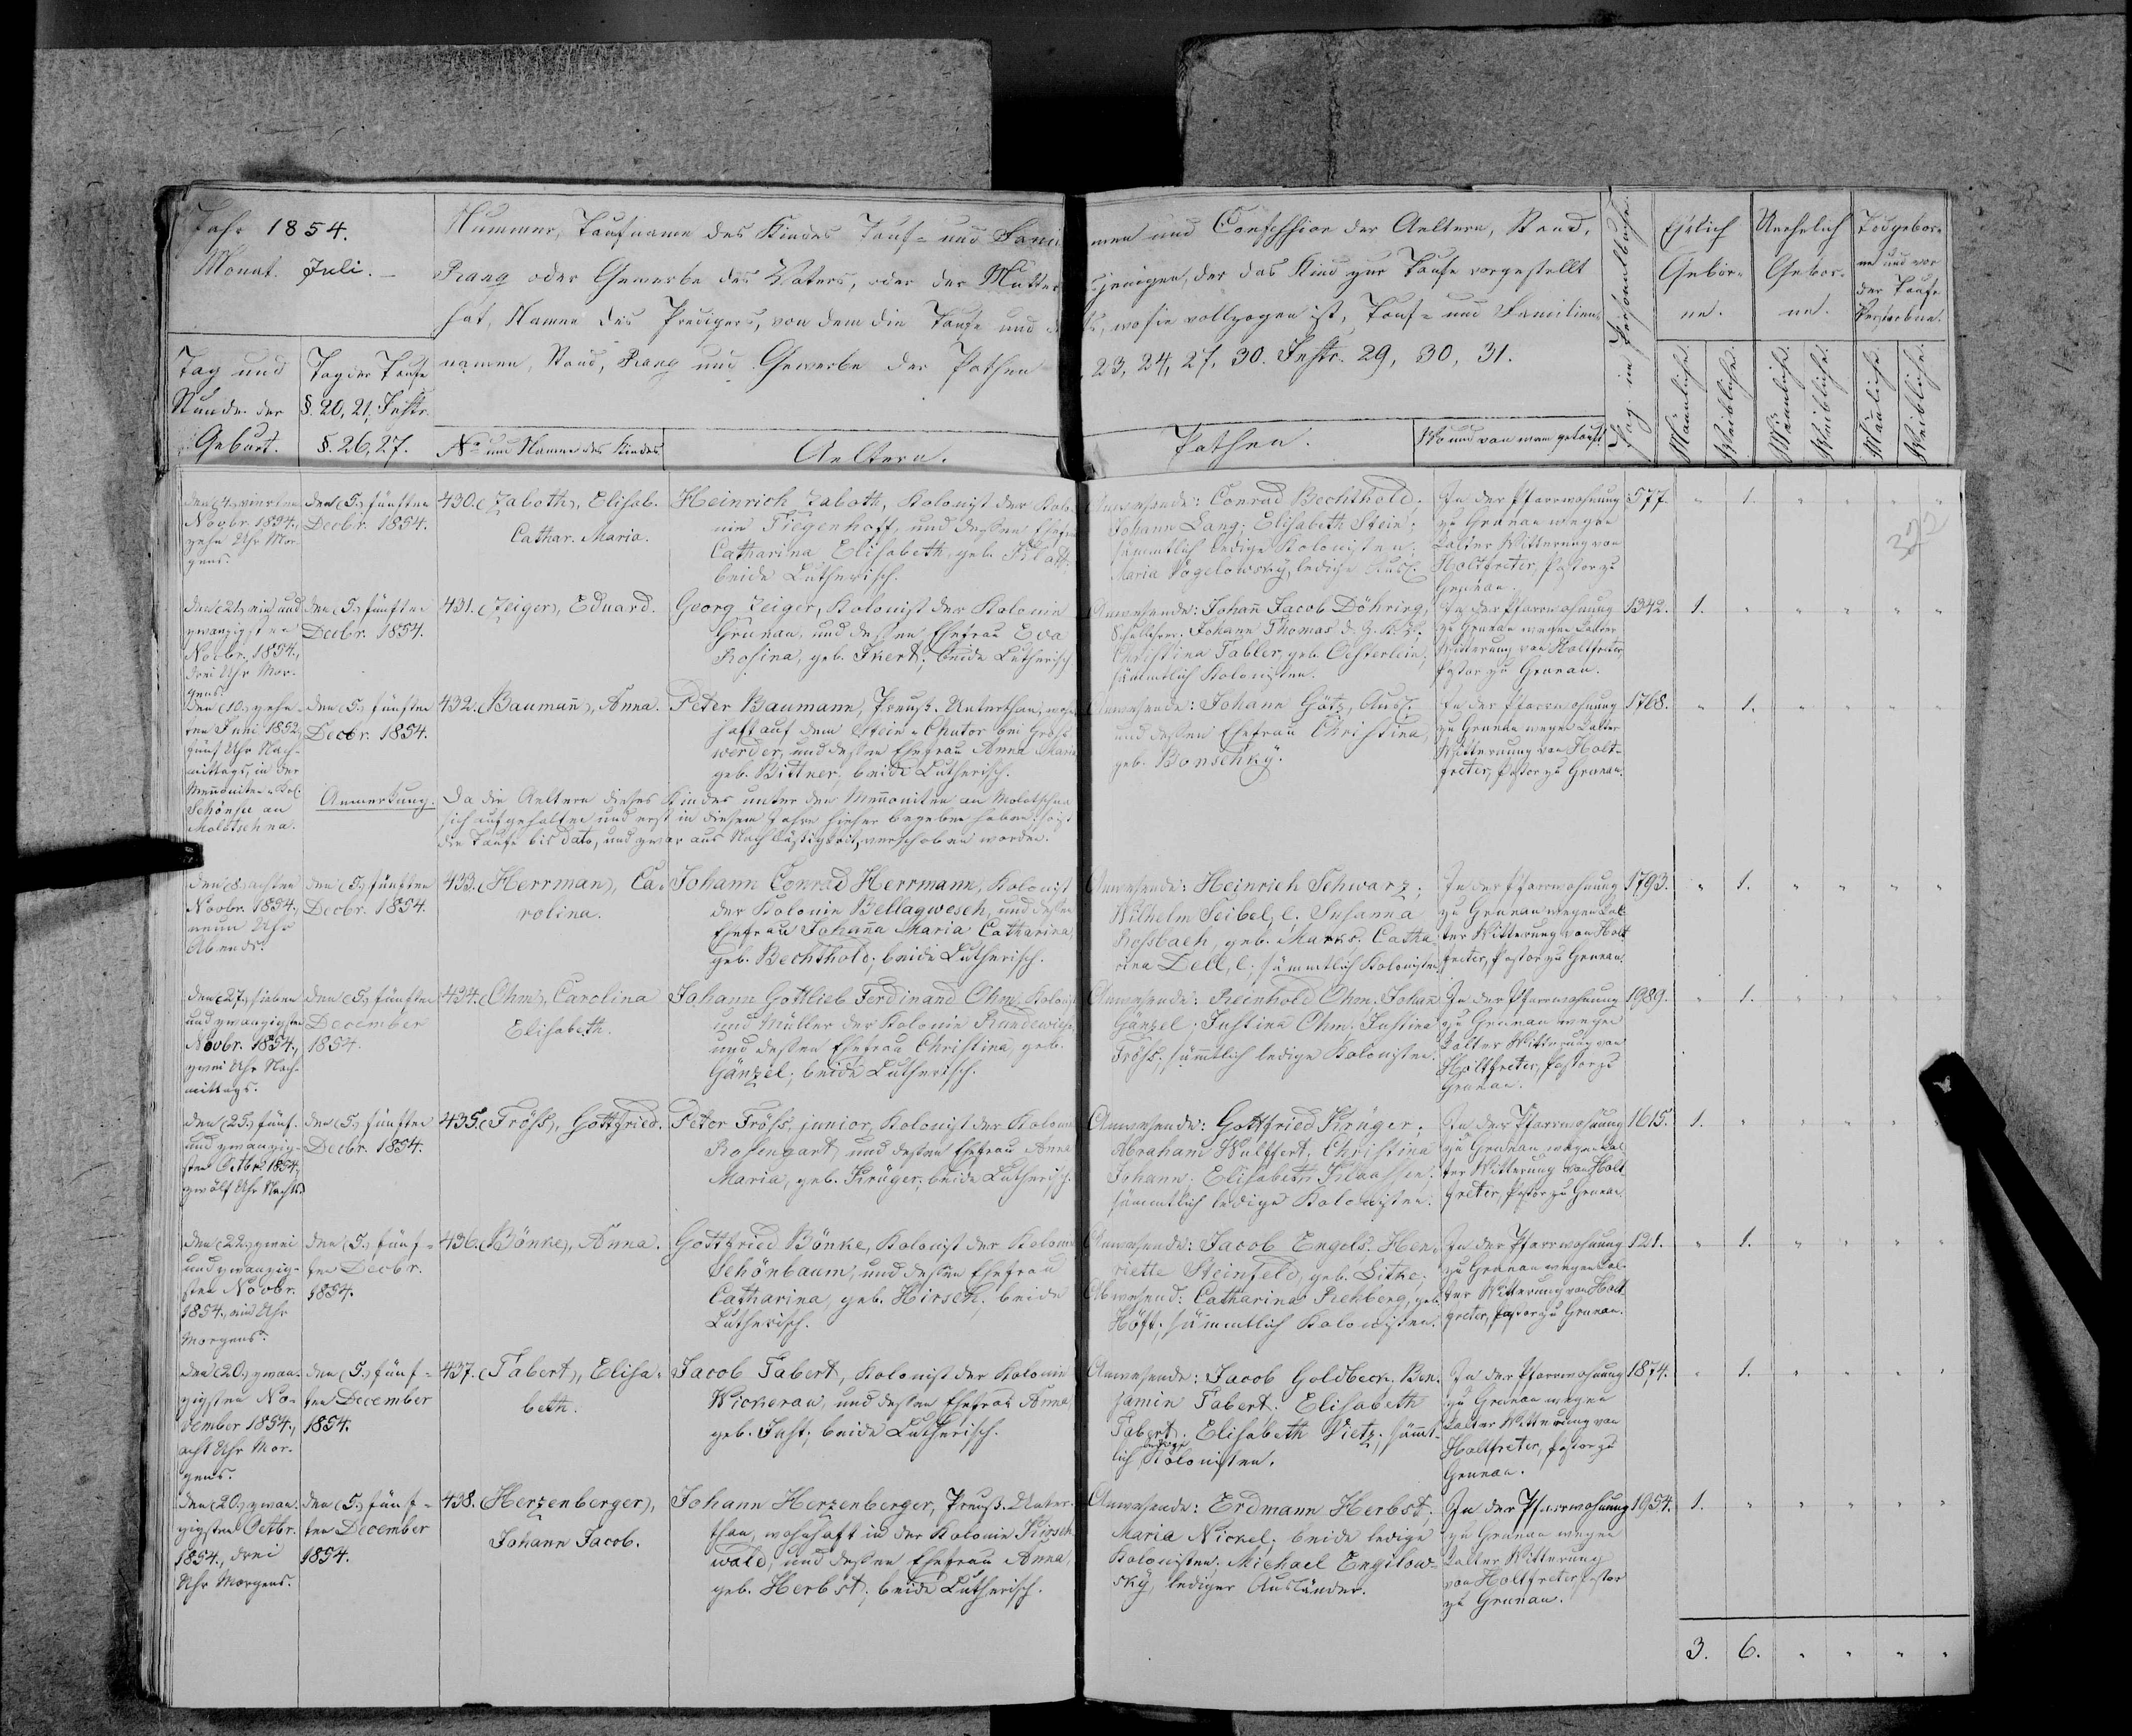 Jahr 1854.
Monat. Juli.
Nummer, Taufname des Kindes Tauf- und Fami
Rang oder Gewerbe des Vaters, oder der Mutter
hat, Namen des Predigers, von dem die Taufe und
namen, Stand, Rang und Gewerbe der Pathen
Tag und
Stunde der
Geburt.
Tag der Taufe
§. 20, 21, Instr.
§. 26, 27.
No und Name des Kindes
Aeltern.
men und Confession der Aeltern, Stand,
jenigen, der das Kind zur Taufe vorgestellt
wo sie vollzogen ist, Tauf- und Familien-
23, 24, 27, 30. Instr. 29, 30, 31.
Pathen.
Wo und von wem getauft.
Pag. im Personalbuche.
Ehelich
Gebor-
ne.
Unehelich
Gebor-
ne.
Todgebor-
ne und vor
der Taufe
Verstorbene.
Männliche.
Weibliche.
Männliche.
Weibliche.
Männliche.
Weibliche.
322
den (4.) vierten
Novbr. 1854.,
zehn Uhr Mor-
gens.
den (5.) fünften
Decbr. 1854.
430. (Zaboth), Elisab.
Cathar. Maria.
Heinrich Zaboth, Kolonist der Kolo-
nie Tiegenhoft, und dessen Ehefrau
Catharina Elisabeth, geb. Klatt;
beide Lutherisch.
Anwesende: Conrad Bechthold;
Johann Lang; Elisabeth Stein;
sämmtlich ledige Kolonisten;
Maria Pogelowsky, ledige Ausl.
In der Pfarrwohnung
zu Grunau wegen
kalter Witterung von
Holtfreter, Pastor zu
Grunau.
577. " 1. " " " "
den (21.) ein und
zwanzigsten
Novbr. 1854.,
drei Uhr Mor-
gens.
den (5.) fünften
Decbr. 1854.
431. (Zeiger), Eduard.
Georg Zeiger, Kolonist der Kolonie
Grunau, und dessen Ehefrau Eva
Rosina, geb. Ikert; beide Lutherisch
Anwesende: Johann Jacob Döhring,
Schullehrer. Johann Thomas d. z. K. V.
Christina Tabler, geb. Oesterlein;
sämmtlich Kolonisten.
In der Pfarrwohnung
zu Grunau wegen kalter
Witterung von Holtfreter
Pastor zu Grunau.
1342. 1. " " " " "
den (10.) zehn-
ten Juni 1852,
fünf Uhr Nach-
mittags, in der
Mennoniten-Kol.
Schönsee an
Molotschna.
den (5.) fünften
Decbr. 1854.
432. (Baumann), Anna.
Peter Baumann, Preuß. Unterthan, wohn-
haft auf dem Stein-Chutor bei Groß-
werder, und dessen Ehefrau Anna Maria
geb. Bittner; beide Lutherisch.
Anwesende: Johann Götz, Ausl.
und dessen Ehefrau Christina,
geb. Bonschky.
In der Pfarrwohnung
zu Grunau wegen kalter
Witterung von Holt-
freter, Pastor zu Grunau.
1768. " 1. " " " "
Anmerkung. Da die Aeltern dieses Kindes unter den Mennoniten an Molotschna
sich aufgehalten und erst in diesem Jahre hieher begeben haben: so ist
die Taufe bis dato, und zwar aus Nachlässigkeit, verschoben worden.
den (8.) achten
Novbr. 1854.,
neun Uhr
Abends.
den (5.) fünften
Decbr. 1854.
433. (Herrman), Ca-
rolina.
Johann Conrad Herrmann, Kolonist
der Kolonie Bellagwesch, und dessen
Ehefrau Johanna Maria Catharina,
geb. Bechthold; beide Lutherisch.
Anwesende: Heinrich Schwarz;
Wilhelm Seibel, l. Susanna
Rossbach, geb. Marks. Catha-
rina Dell, l; sämmtlich Kolonisten.
In der Pfarrwohnung
zu Grunau wegen kal-
ter Witterung von Holt
freter, Pastor zu Grunau.
1793. " 1. " " " "
den (27.) sieben
und zwanzigsten
Novbr. 1854.,
zwei Uhr Nach-
mittags.
den (5.) fünften
December
1854.
434. (Ohm), Carolina
Elisabeth.
Johann Gottlieb Ferdinand Ohm, Kolonist
und Müller der Kolonie Rundewiese,
und dessen Ehefrau Christina, geb.
Gänzel; beide Lutherisch.
Anwesende: Reinhold Ohm. Johann
Gänzel; Justina Ohm. Justina
Fröss, sämmtlich ledige Kolonisten.
In der Pfarrwohnung
zu Grunau wegen
kalter Witterung von
Holtfreter, Pastor zu
Grunau.
1989. " 1. " " " "
den (25.) fünf-
und zwanzig-
sten Octbr. 1854,
zwölf Uhr Nachts.
den (5.) fünften
Decbr. 1854.
435. (Fröss), Gottfried.
Peter Fröss junior, Kolonist der Kolonie
Rosengart, und dessen Ehefrau Anna
Maria, geb. Krüger; beide Lutherisch.
Anwesende: Gottfried Krüger;
Abraham Wulffert; Christina
Johann; Elisabeth Klaassen;
sämmtlich ledige Kolonisten.
In der Pfarrwohnung
zu Grunau wegen kal
ter Witterung von Holt
freter, Pastor zu Grunau.
1615. 1. " " " " "
den (22.) zwei
und zwanzig-
sten Novbr.
1854., ein Uhr
Morgens.
den (5.) fünf-
ten Decbr.
1854.
436. (Bönke), Anna.
Gottfried Bönke, Kolonist der Kolonie
Schönbaum, und dessen Ehefrau
Catharina, geb. Hirsch; beide
Lutherisch.
Anwesende: Jacob Engels. Hen-
riette Steinfeld, geb. Litke;
Abwesend: Catharina Rehberg, geb.
Höft; sämmtlich Kolonisten.
In der Pfarrwohnung
zu Grunau wegen kal-
ter Witterung von Holt
freter, Pastor zu Grunau.
121. " 1. " " " "
den (20.) zwan-
zigsten No-
vember 1854.,
acht Uhr Mor-
gens.
den (5.) fünf-
ten December
1854.
437. (Tabert), Elisa-
beth.
Jacob Tabert, Kolonist der Kolonie
Wickerau, und dessen Ehefrau Anna,
geb. Fast; beide Lutherisch.
Anwesende: Jacob Goldbeck. Ben-
jamin Tabert. Elisabeth
Tabert. Elisabeth Vietz; sämmt-
lich ledige Kolonisten.
In der Pfarrwohnung
zu Grunau wegen
kalter Witterung von
Holtfreter, Pastor zu
Grunau.
1874. " 1. " " " "
den (20.) zwan-
zigsten Octbr.
1854., drei
Uhr Morgens.
den (5.) fünf-
ten December
1854.
438. (Herzenberger),
Johann Jacob.
Johann Herzenberger, Preuß. Unter-
than, wohnhaft in der Kolonie Kirsch
wald, und dessen Ehefrau Anna,
geb. Herbst; beide Lutherisch.
Anwesende: Erdmann Herbst;
Maria Nickel; beide ledige
Kolonisten. Michael Engilow-
sky, lediger Ausländer.
In der Pfarrwohnung
zu Grunau wegen
kalter Witterung
von Holtfreter Pastor
zu Grunau.
1954. 1. " " " " "
3. 6. " " " "